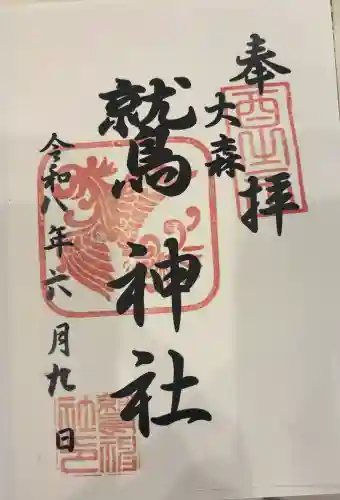 奉拝
大森
鷲神社
令和八年六月九日